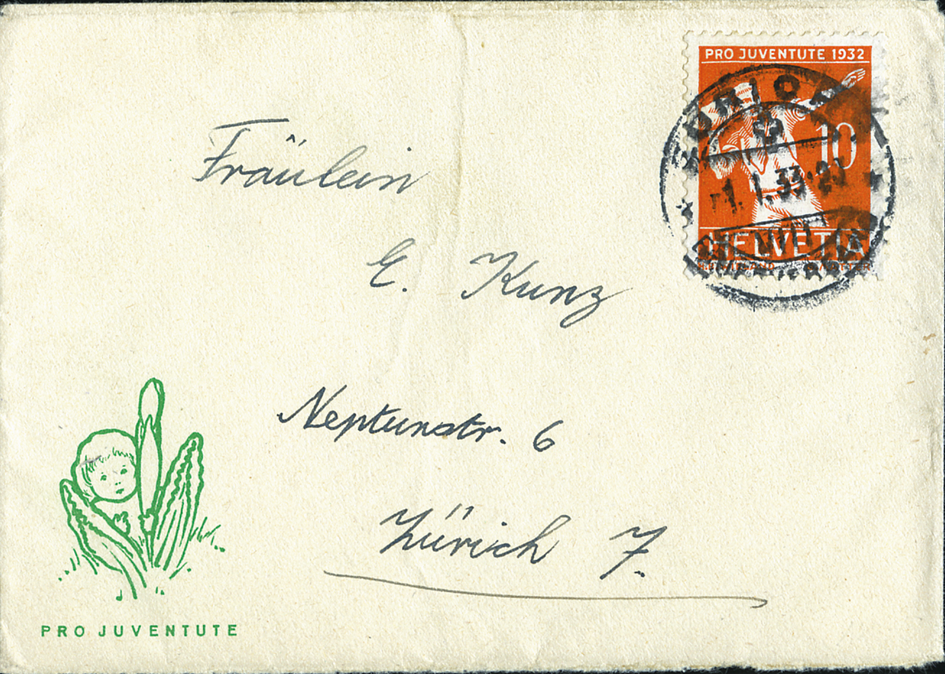 PRO JUVENTUTE 1932
ZÜRICH
10
-1.I.33-23
HELVETIA
Fräulein
E. Kunz
Neptunstr. 6
Zürich 7.
PRO JUVENTUTE